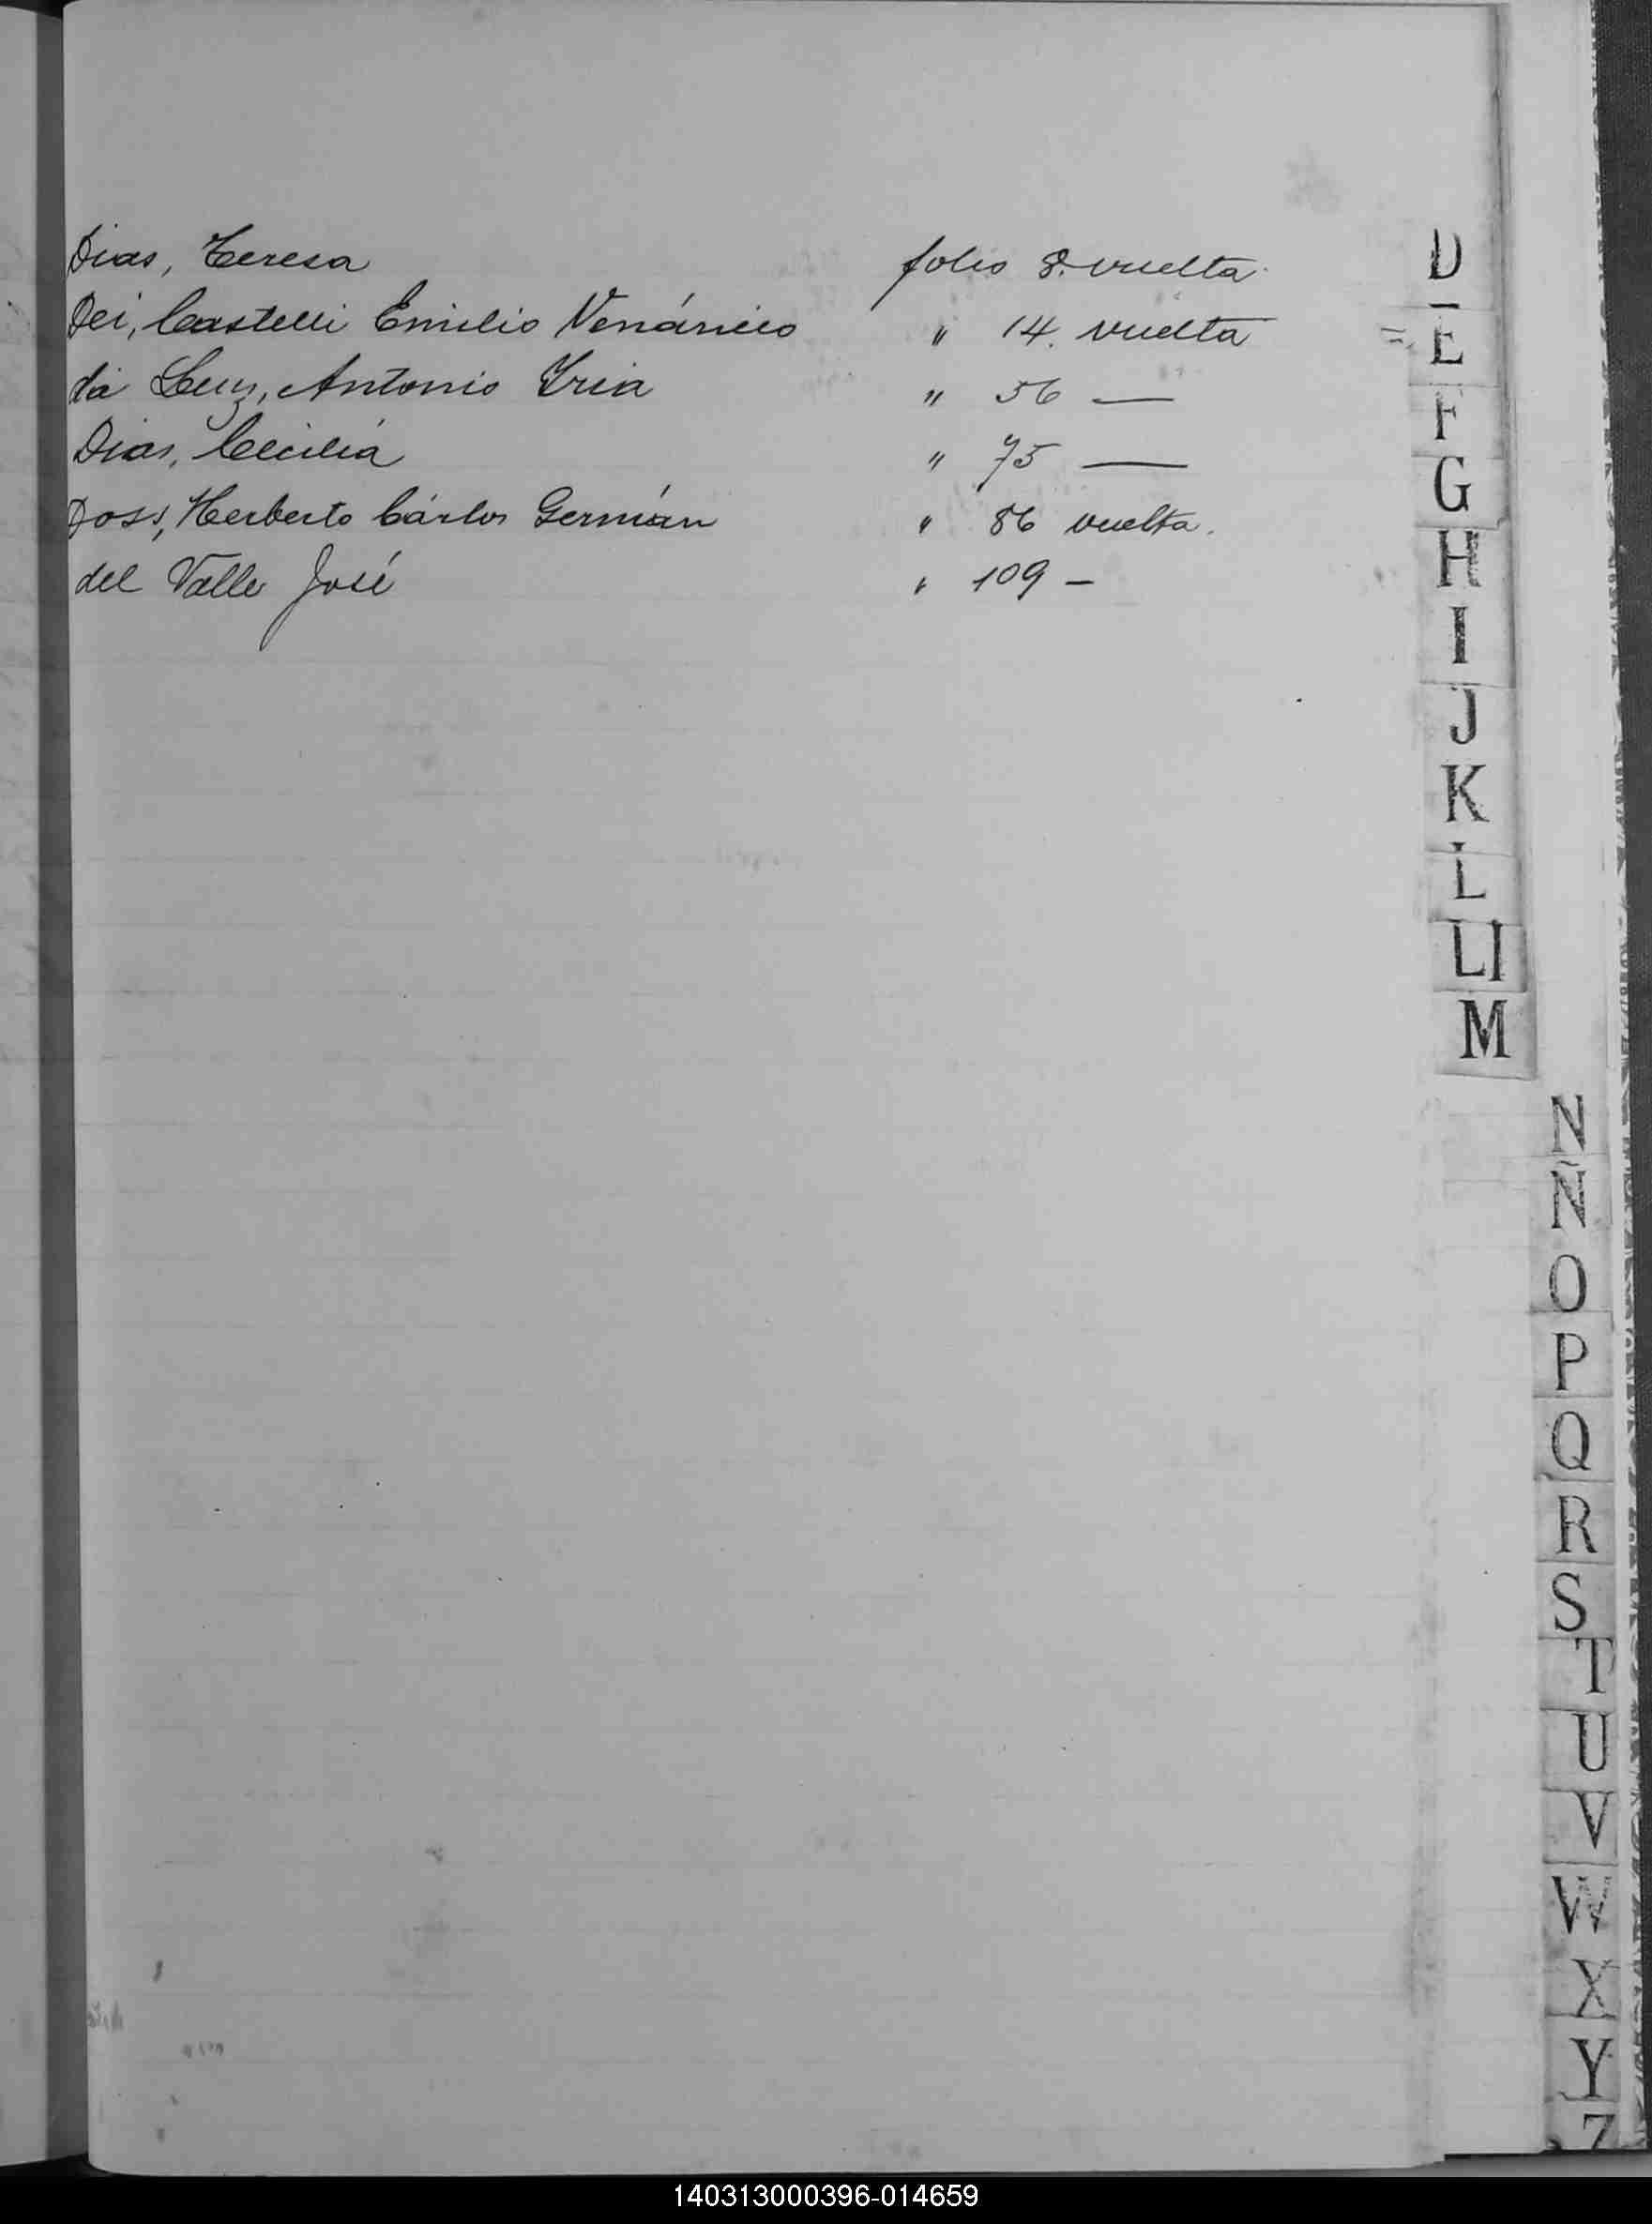 Dias, Teresa folio 8. vuelta.
Dei, Castelli Emilio Venáncio " 14. vuelta
da Luz, Antonio Iria " 56 —
Dias, Cecilia " 75 —
Doss, Herberto Cárlos Germán " 86 vuelta.
del Valle José " 109 —
D
E
F
G
H
I
J
K
L
Ll
M
N
Ñ
O
P
Q
R
S
T
U
V
W
X
Y
Z
140313000396-014659